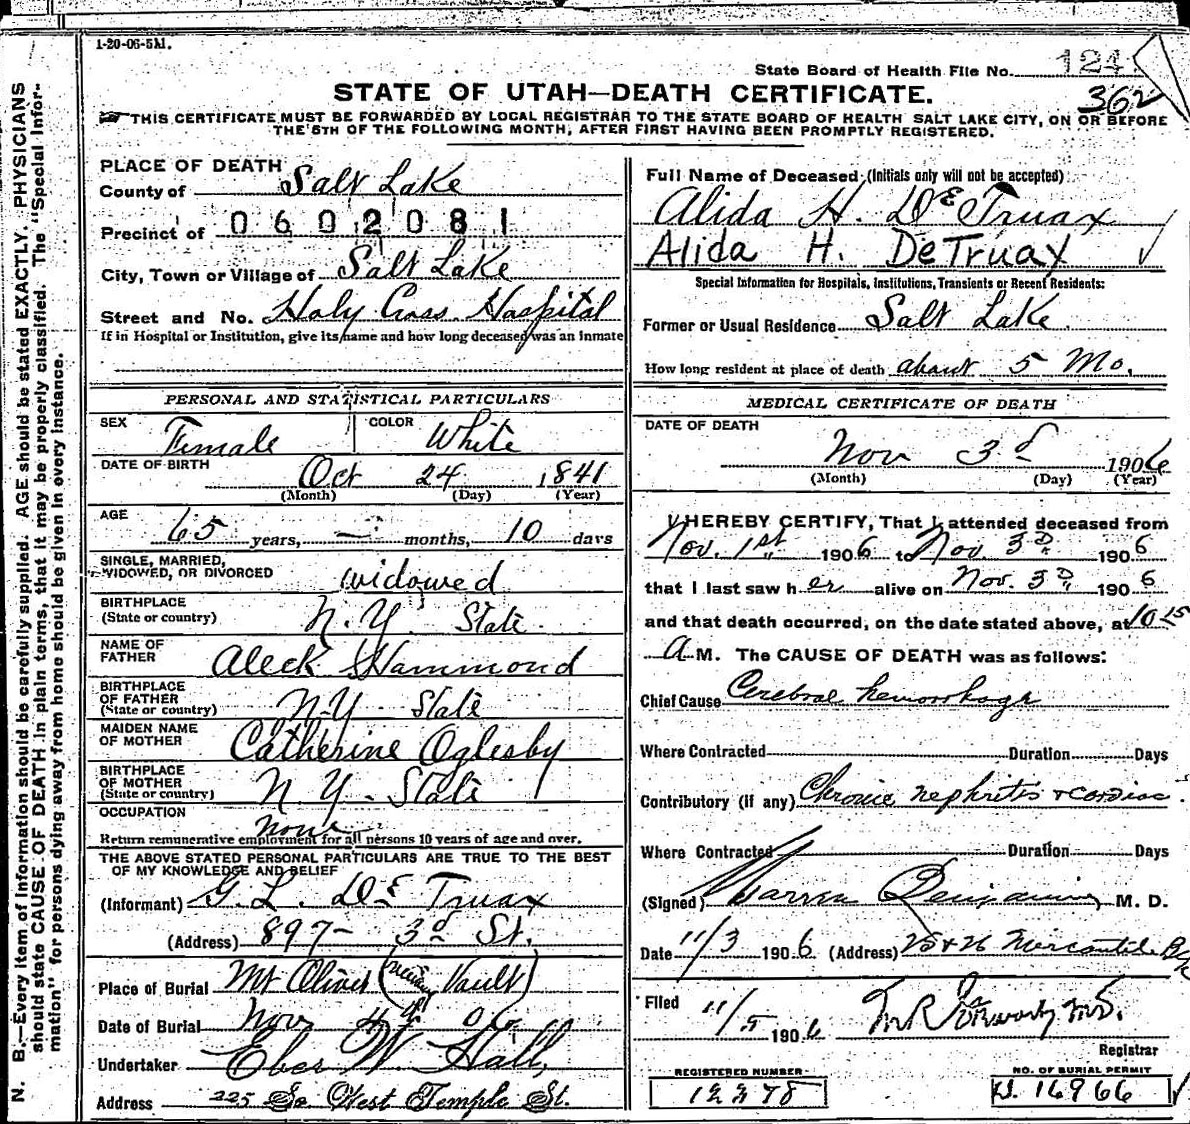 1-20-06-5M.
State Board of Health File No. 124
362
STATE OF UTAH—DEATH CERTIFICATE.
THIS CERTIFICATE MUST BE FORWARDED BY LOCAL REGISTRAR TO THE STATE BOARD OF HEALTH SALT LAKE CITY, ON OR BEFORE
THE 5TH OF THE FOLLOWING MONTH, AFTER FIRST HAVING BEEN PROMPTLY REGISTERED.
N. B.—Every item of information should be carefully supplied. AGE should be stated EXACTLY. PHYSICIANS
should state CAUSE OF DEATH in plain terms, that it may be properly classified. The "Special Infor-
mation" for persons dying away from home should be given in every instance.
PLACE OF DEATH
County of Salt Lake
Precinct of 0602081
City, Town or Village of Salt Lake
Street and No. Holy Cross Hospital
If in Hospital or Institution, give its name and how long deceased was an inmate
PERSONAL AND STATISTICAL PARTICULARS
SEX Female COLOR White
DATE OF BIRTH Oct 24 1841
(Month) (Day) (Year)
AGE 65 years, — months, 10 days
SINGLE, MARRIED,
WIDOWED, OR DIVORCED widowed
BIRTHPLACE
(State or country) N.Y. State
NAME OF
FATHER Aleck Hammond
BIRTHPLACE
OF FATHER
(State or country) N.Y. State
MAIDEN NAME
OF MOTHER Catherine Oglesby
BIRTHPLACE
OF MOTHER
(State or country) N.Y. State
OCCUPATION none
Return remunerative employment for all persons 10 years of age and over.
THE ABOVE STATED PERSONAL PARTICULARS ARE TRUE TO THE BEST
OF MY KNOWLEDGE AND BELIEF
(Informant) G. L. DE Truax
(Address) 897- 3d St.
Place of Burial Mt Olivet ( Vault)
Date of Burial Nov 4th 06
Undertaker Eber W. Hall,
Address 225 So West Temple St.
Full Name of Deceased (Initials only will not be accepted)
Alida H. DE Truax
Alida H. DeTruax
Special Information for Hospitals, Institutions, Transients or Recent Residents:
Former or Usual Residence Salt Lake
How long resident at place of death about 5 Mo.
MEDICAL CERTIFICATE OF DEATH
DATE OF DEATH
Nov 3d 1906
(Month) (Day) (Year)
I HEREBY CERTIFY, That I attended deceased from
Nov. 1st 1906 to Nov. 3D 1906
that I last saw her alive on Nov. 3D 1906
and that death occurred, on the date stated above, at 10 15
A M. The CAUSE OF DEATH was as follows:
Chief Cause Cerebral hemorrhage
Where Contracted Duration Days
Contributory (if any) Chronic nephritis + cardiac
Where Contracted Duration Days
(Signed) Warren Benjamin M. D.
Date 11/3 1906 (Address) 25+26 Mercantile Bk
Filed 11/5 1906
M.D.
Registrar
REGISTERED NUMBER
12278
NO. OF BURIAL PERMIT
D. 16966